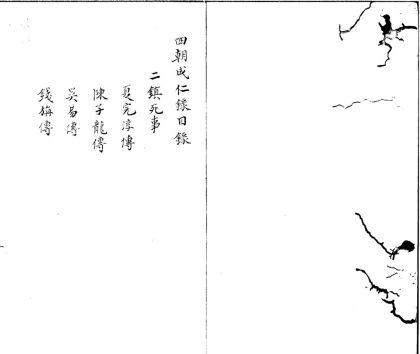 四朝成仁錄目錄
二鎮死事
夏完淳傳
陳子龍傳
吳易傳
錢旃傳